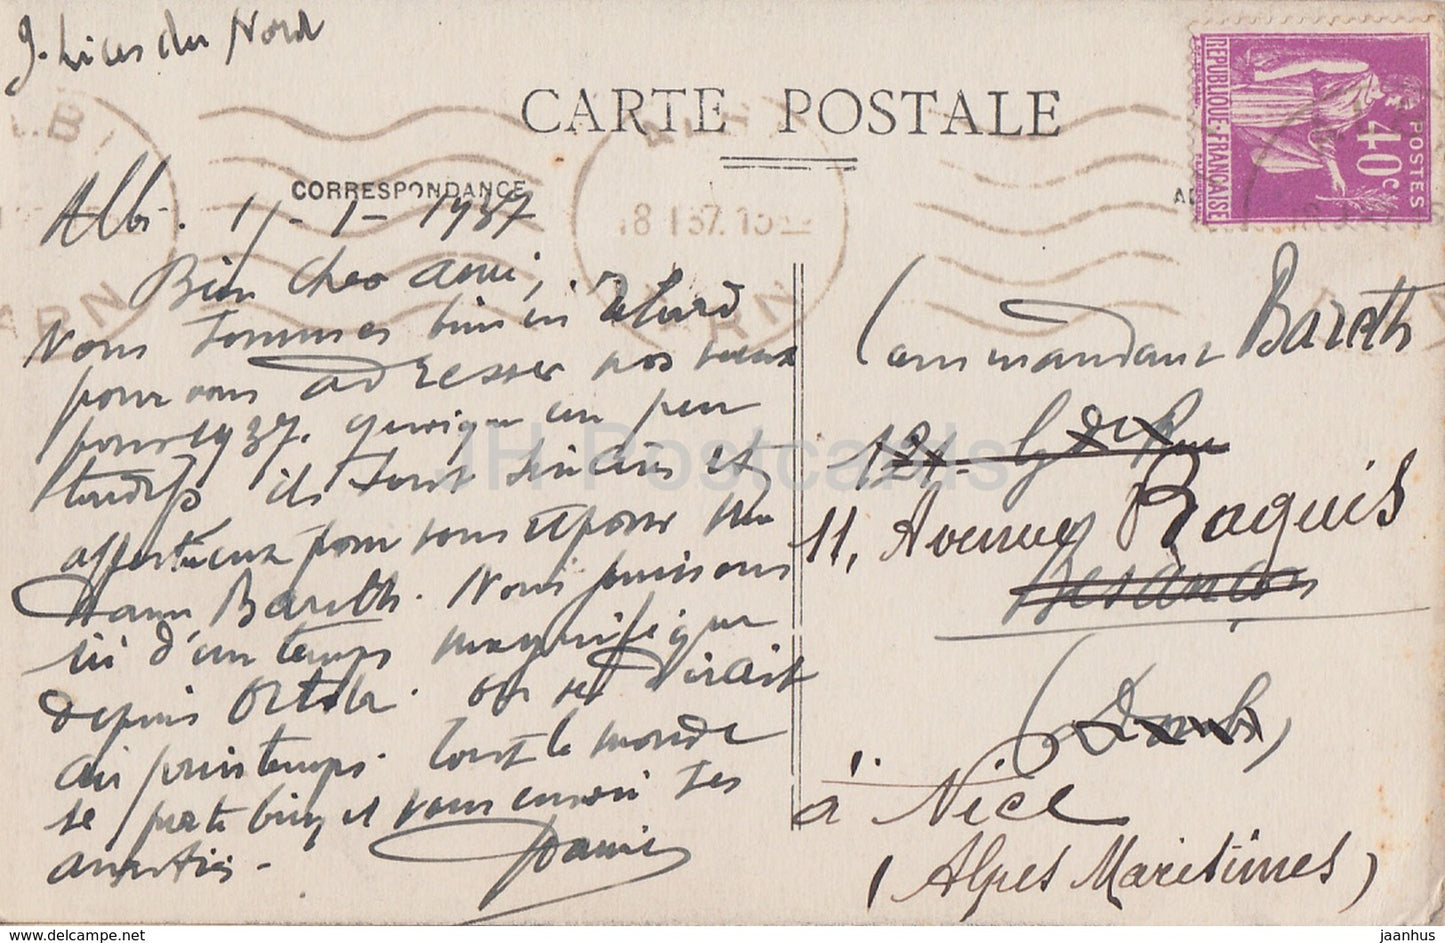 9. Lices du Nord
CARTE POSTALE
CORRESPONDANCE
RÉPUBLIQUE-FRANÇAISE
POSTES
40c
ALBI
TARN
18 I 37.15
Albi. 11-1-1937
Bien cher ami,
Nous sommes bien en retard
pour vous adresser nos vœux
pour 1937. Quoique un peu
tardifs ils sont sincères et
affectueux pour vous et pour Ma
dame Bareth. Nous jouissons
ici d'un temps magnifique
depuis Octobre. On se dirait
au printemps. Tout le monde
se porte bien, et vous envoie ses
amitiés.
Commandant Bareth
12 G de Rue
11, Avenue Raquis
Besançon
(Doubs)
à Nice
(Alpes Maritimes)
JH Postcards
www.delcampe.net
jaanhus